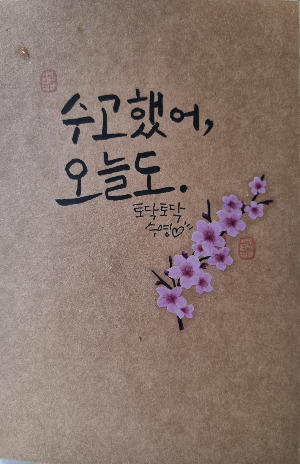 수고했어,
오늘도.
토닥토닥
수영♡